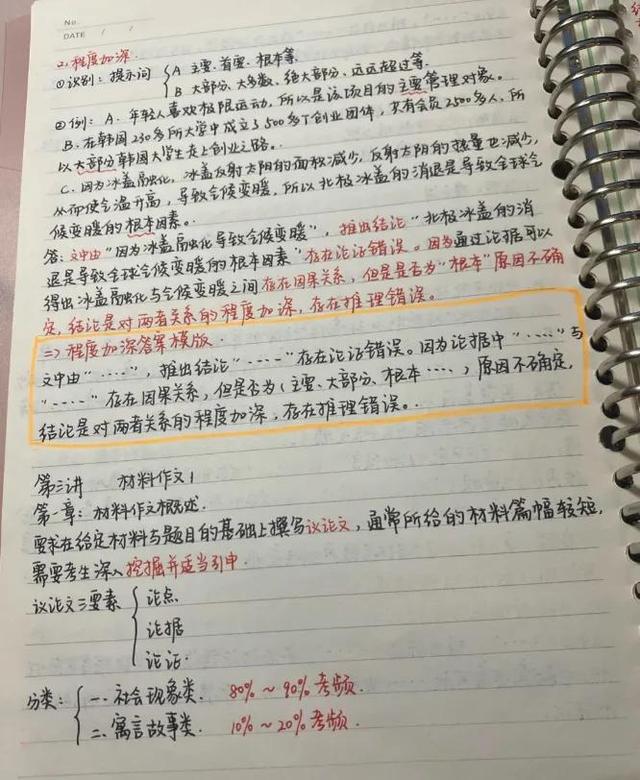 No.
DATE / /
2、程度加深.
①识别：提示词 { A 主要、首要、根本等.
B 大部分、大多数、绝大部分、远远超过等.
②例：A. 年轻人喜欢极限运动，所以是该项目的主要管理对象。
B. 在韩国230多所大学中成立了500多个创业团体，共有会员2500多人，所
以大部分韩国大学生走上创业之路。.
C. 因为冰盖融化，冰盖反射太阳的面积减少，反射太阳的热量也减少，
从而使气温升高，导致气候变暖，所以北极冰盖的消退是导致全球气
候变暖的根本因素。.
答：文中由“因为冰盖融化导致气候变暖”，推出结论“北极冰盖的消
退是导致全球气候变暖的根本因素”存在论证错误。因为通过论据可以
得出冰盖融化与气候变暖之间存在因果关系，但是是否为“根本”原因不确
定，结论是对两者关系的程度加深，存在推理错误。
=> 程度加深答案模版.
文中由“……”，推出结论“……”存在论证错误。因为论据中“……”与
“……”存在因果关系，但是否为（主要、大部分、根本……）原因不确定，
结论是对两者关系的程度加深，存在推理错误。.
第三讲 材料作文1
第一章：材料作文概述.
要求在给定材料与题目的基础上撰写议论文，通常所给的材料篇幅较短，
需要考生深入挖掘并适当引申.
议论文三要素 { 论点
论据
论证.
分类： { 一. 社会现象类. 80%～90% 考频.
二. 寓言故事类. 10%～20% 考频.